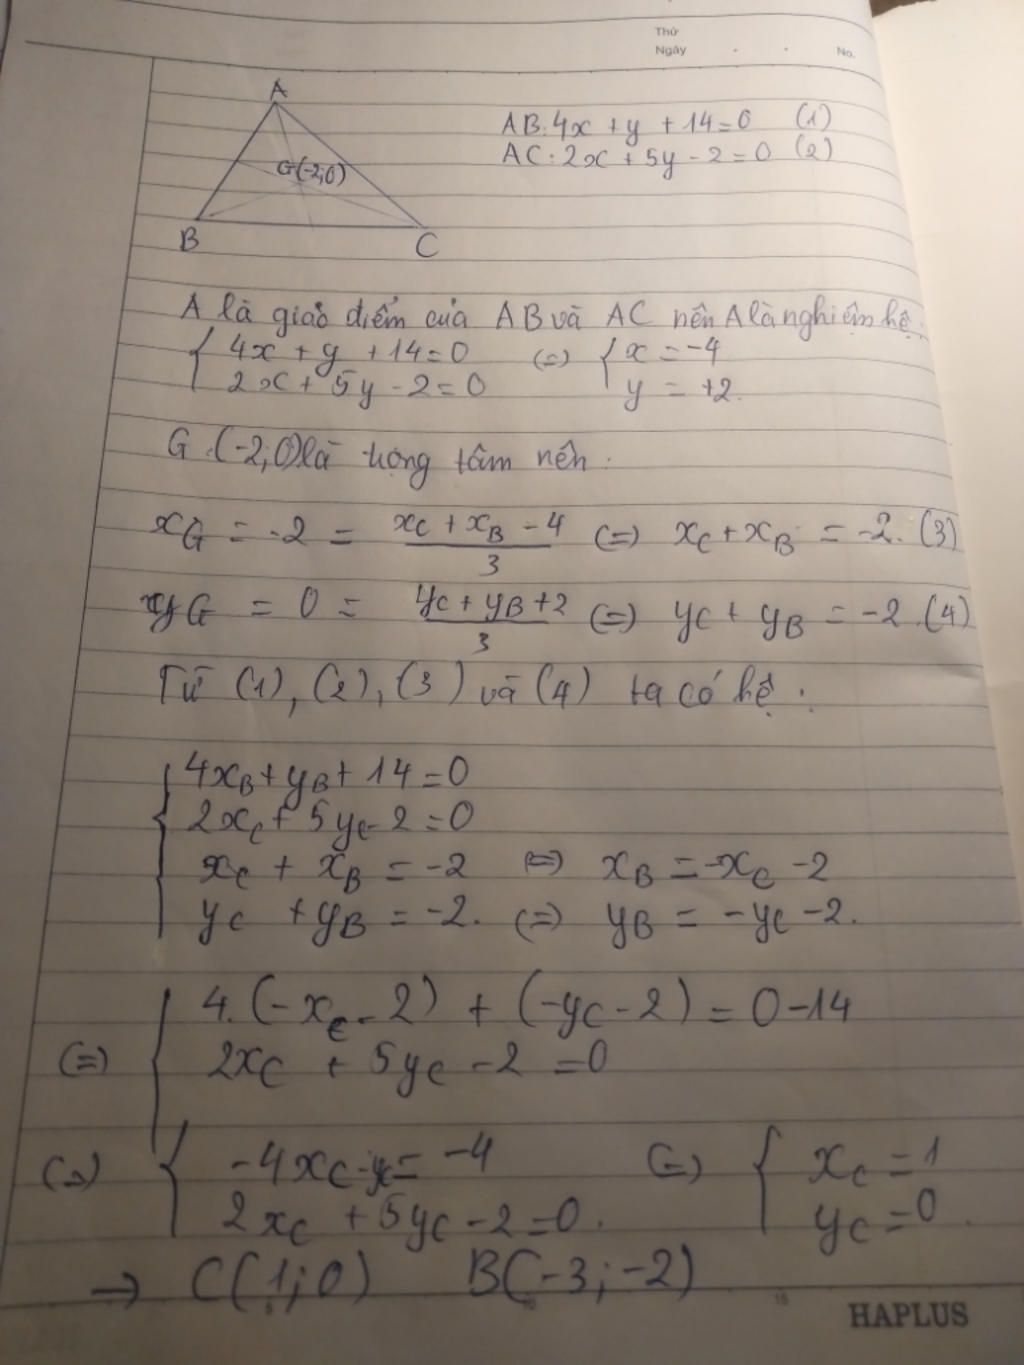 Thứ
Ngày . . No.
A
G(-2;0)
B
C
AB: 4x + y + 14 = 0 (1)
AC: 2x + 5y - 2 = 0 (2)
A là giao điểm của AB và AC nên A là nghiệm hệ:
{ 4x + y + 14 = 0 (=) { x = -4
2x + 5y - 2 = 0 y = +2.
G (-2;0) là trọng tâm nên:
xG = -2 = (xC + xB - 4)/3 (=) xC + xB = -2. (3)
yG = 0 = (yC + yB + 2)/3 (=) yC + yB = -2. (4)
Từ (1), (2), (3) và (4) ta có hệ:
{ 4xB + yB + 14 = 0
2xC + 5yC - 2 = 0
xC + xB = -2 (=) xB = -xC - 2
yC + yB = -2. (=) yB = -yC - 2.
(=) { 4.(-xC - 2) + (-yC - 2) = 0 - 14
2xC + 5yC - 2 = 0
(=) { -4xC - yC = -4 (=) { xC = 1
2xC + 5yC - 2 = 0. yC = 0.
→ C(1;0) B(-3;-2)
5 10 15
HAPLUS